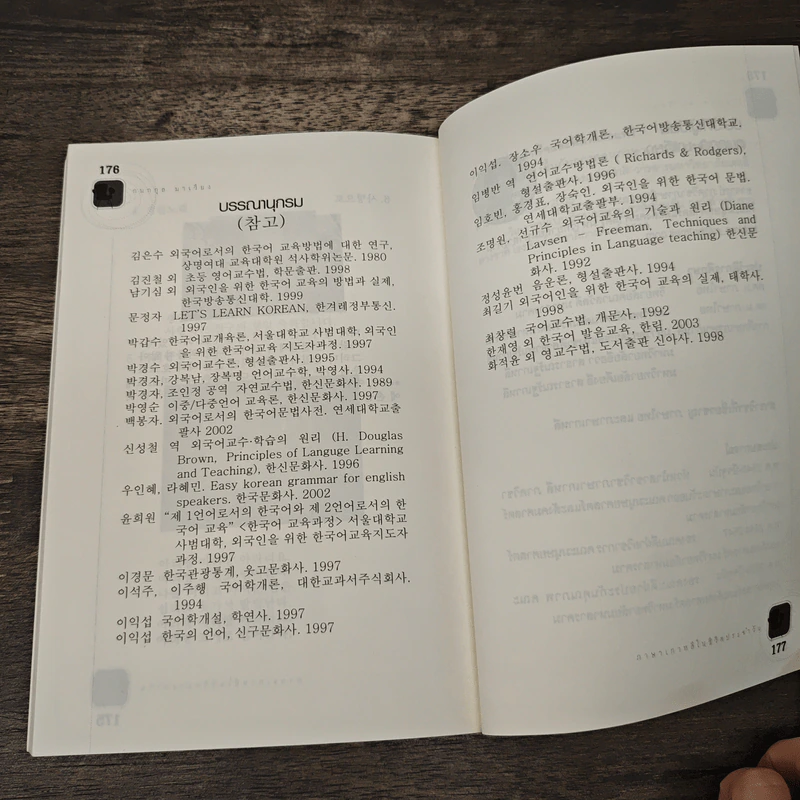 176
บรรณานุกรม
(참고)
김은수 외국어로서의 한국어 교육방법에 대한 연구,
상명여대 교육대학원 석사학위논문. 1980
김진철 외 초등 영어교수법, 학문출판. 1998
남기심 외 외국인을 위한 한국어 교육의 방법과 실제,
한국방송통신대학. 1999
문정자 LET'S LEARN KOREAN, 한겨레정부통신.
1997
박갑수 한국어교개육론, 서울대학교 사범대학, 외국인
을 위한 한국어교육 지도자과정. 1997
박경수 외국어교수론, 형설출판사. 1995
박경자, 강복남, 장복명 언어교수학, 박영사. 1994
박경자, 조인정 공역 자연교수법, 한신문화사. 1989
박영순 이중/다중언어 교육론, 한신문화사. 1997
백봉자. 외국어로서의 한국어문법사전. 연세대학교출
팔사 2002
신성철 역 외국어교수·학습의 원리 (H, Douglas
Brown, Principles of Languge Learning
and Teaching), 한신문화사. 1996
우인혜, 라혜민, Easy korean grammar for english
speakers. 한국문화사. 2002
윤희원 “제 1언어로서의 한국어와 제 2언어로서의 한
국어 교육” <한국어 교육과정> 서울대학교
사범대학, 외국인을 위한 한국어교육지도자
과정. 1997
이경문 한국관광통계, 웃고문화사. 1997
이석주, 이주행 국어학개론, 대한교과서주식회사.
1994
이익섭 국어학개설, 학연사. 1997
이익섭 한국의 언어, 신구문화사. 1997
이익섭. 장소우 국어학개론, 한국어방송통신대학교,
1994
임병반 역 언어교수방법론 ( Richards & Rodgers),
형설출판사, 1996
임호빈, 홍경표, 장숙인. 외국인을 위한 한국어 문법.
연세대학교출팔부. 1994
조명원, 선규수 외국어교육의 기술과 원리 (Diane
Lavsen – Freeman, Techniques and
Principles in Language teaching) 한신문
화사. 1992
정성윤번 음운론, 형설출판사. 1994
최길기 외국어인을 위한 한국어 교육의 실제, 태학사.
1998
최창렬 국어교수법, 개문사, 1992
한재영 외 한국어 발음교육, 한림. 2003
화적윤 외 영교수법, 도서출판 신아사. 1998
ภาษาเกาหลีในชีวิตประจำวัน
177